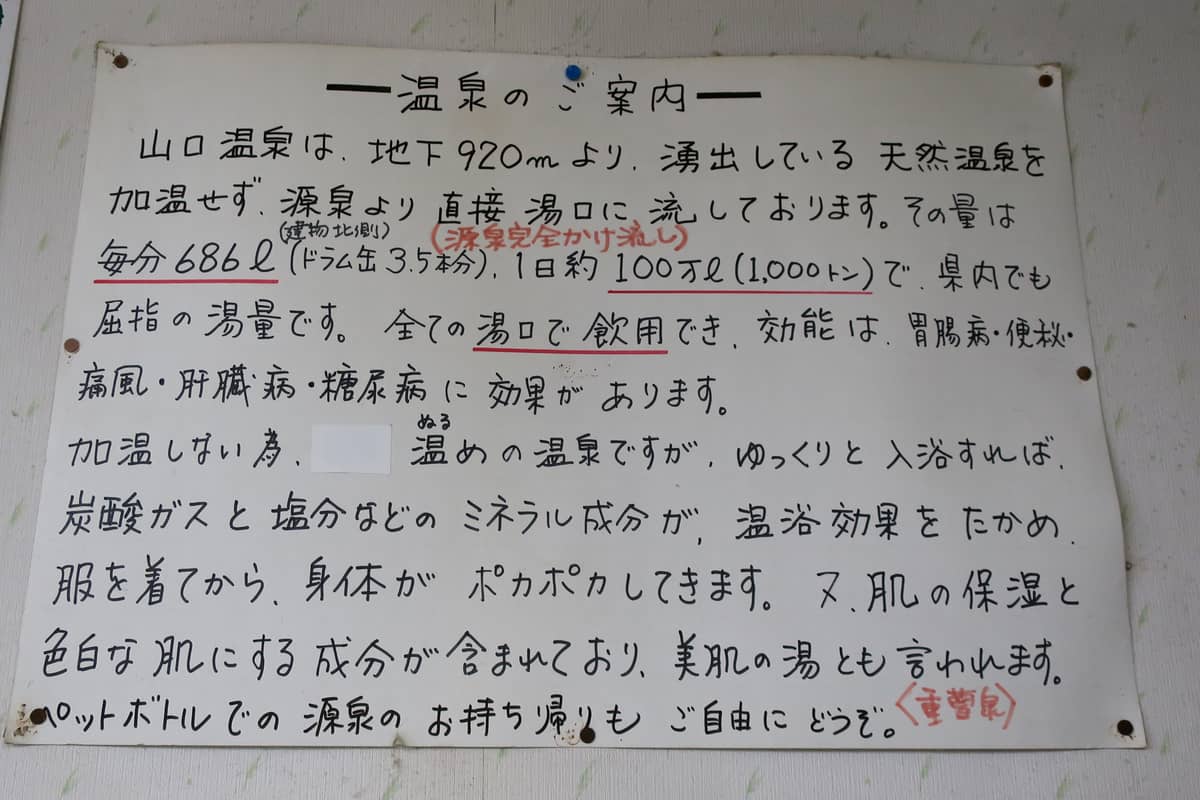 温泉のご案内
山口温泉は、地下920mより、湧出している天然温泉を
加温せず、源泉より直接湯口に流しております。その量は
(建物北側) (源泉完全かけ流し)
毎分686ℓ(ドラム缶3.5本分)、1日約100万ℓ(1,000トン)で、県内でも
屈指の湯量です。全ての湯口で飲用でき、効能は、胃腸病・便秘・
痛風・肝臓病・糖尿病に効果があります。
ぬる
加温しない為、温めの温泉ですが、ゆっくりと入浴すれば、
炭酸ガスと塩分などのミネラル成分が、温浴効果をたかめ、
服を着てから、身体がポカポカしてきます。又、肌の保湿と
色白な肌にする成分が含まれており、美肌の湯とも言われます。
〈重曹泉〉
ペットボトルでの源泉のお持ち帰りもご自由にどうぞ。